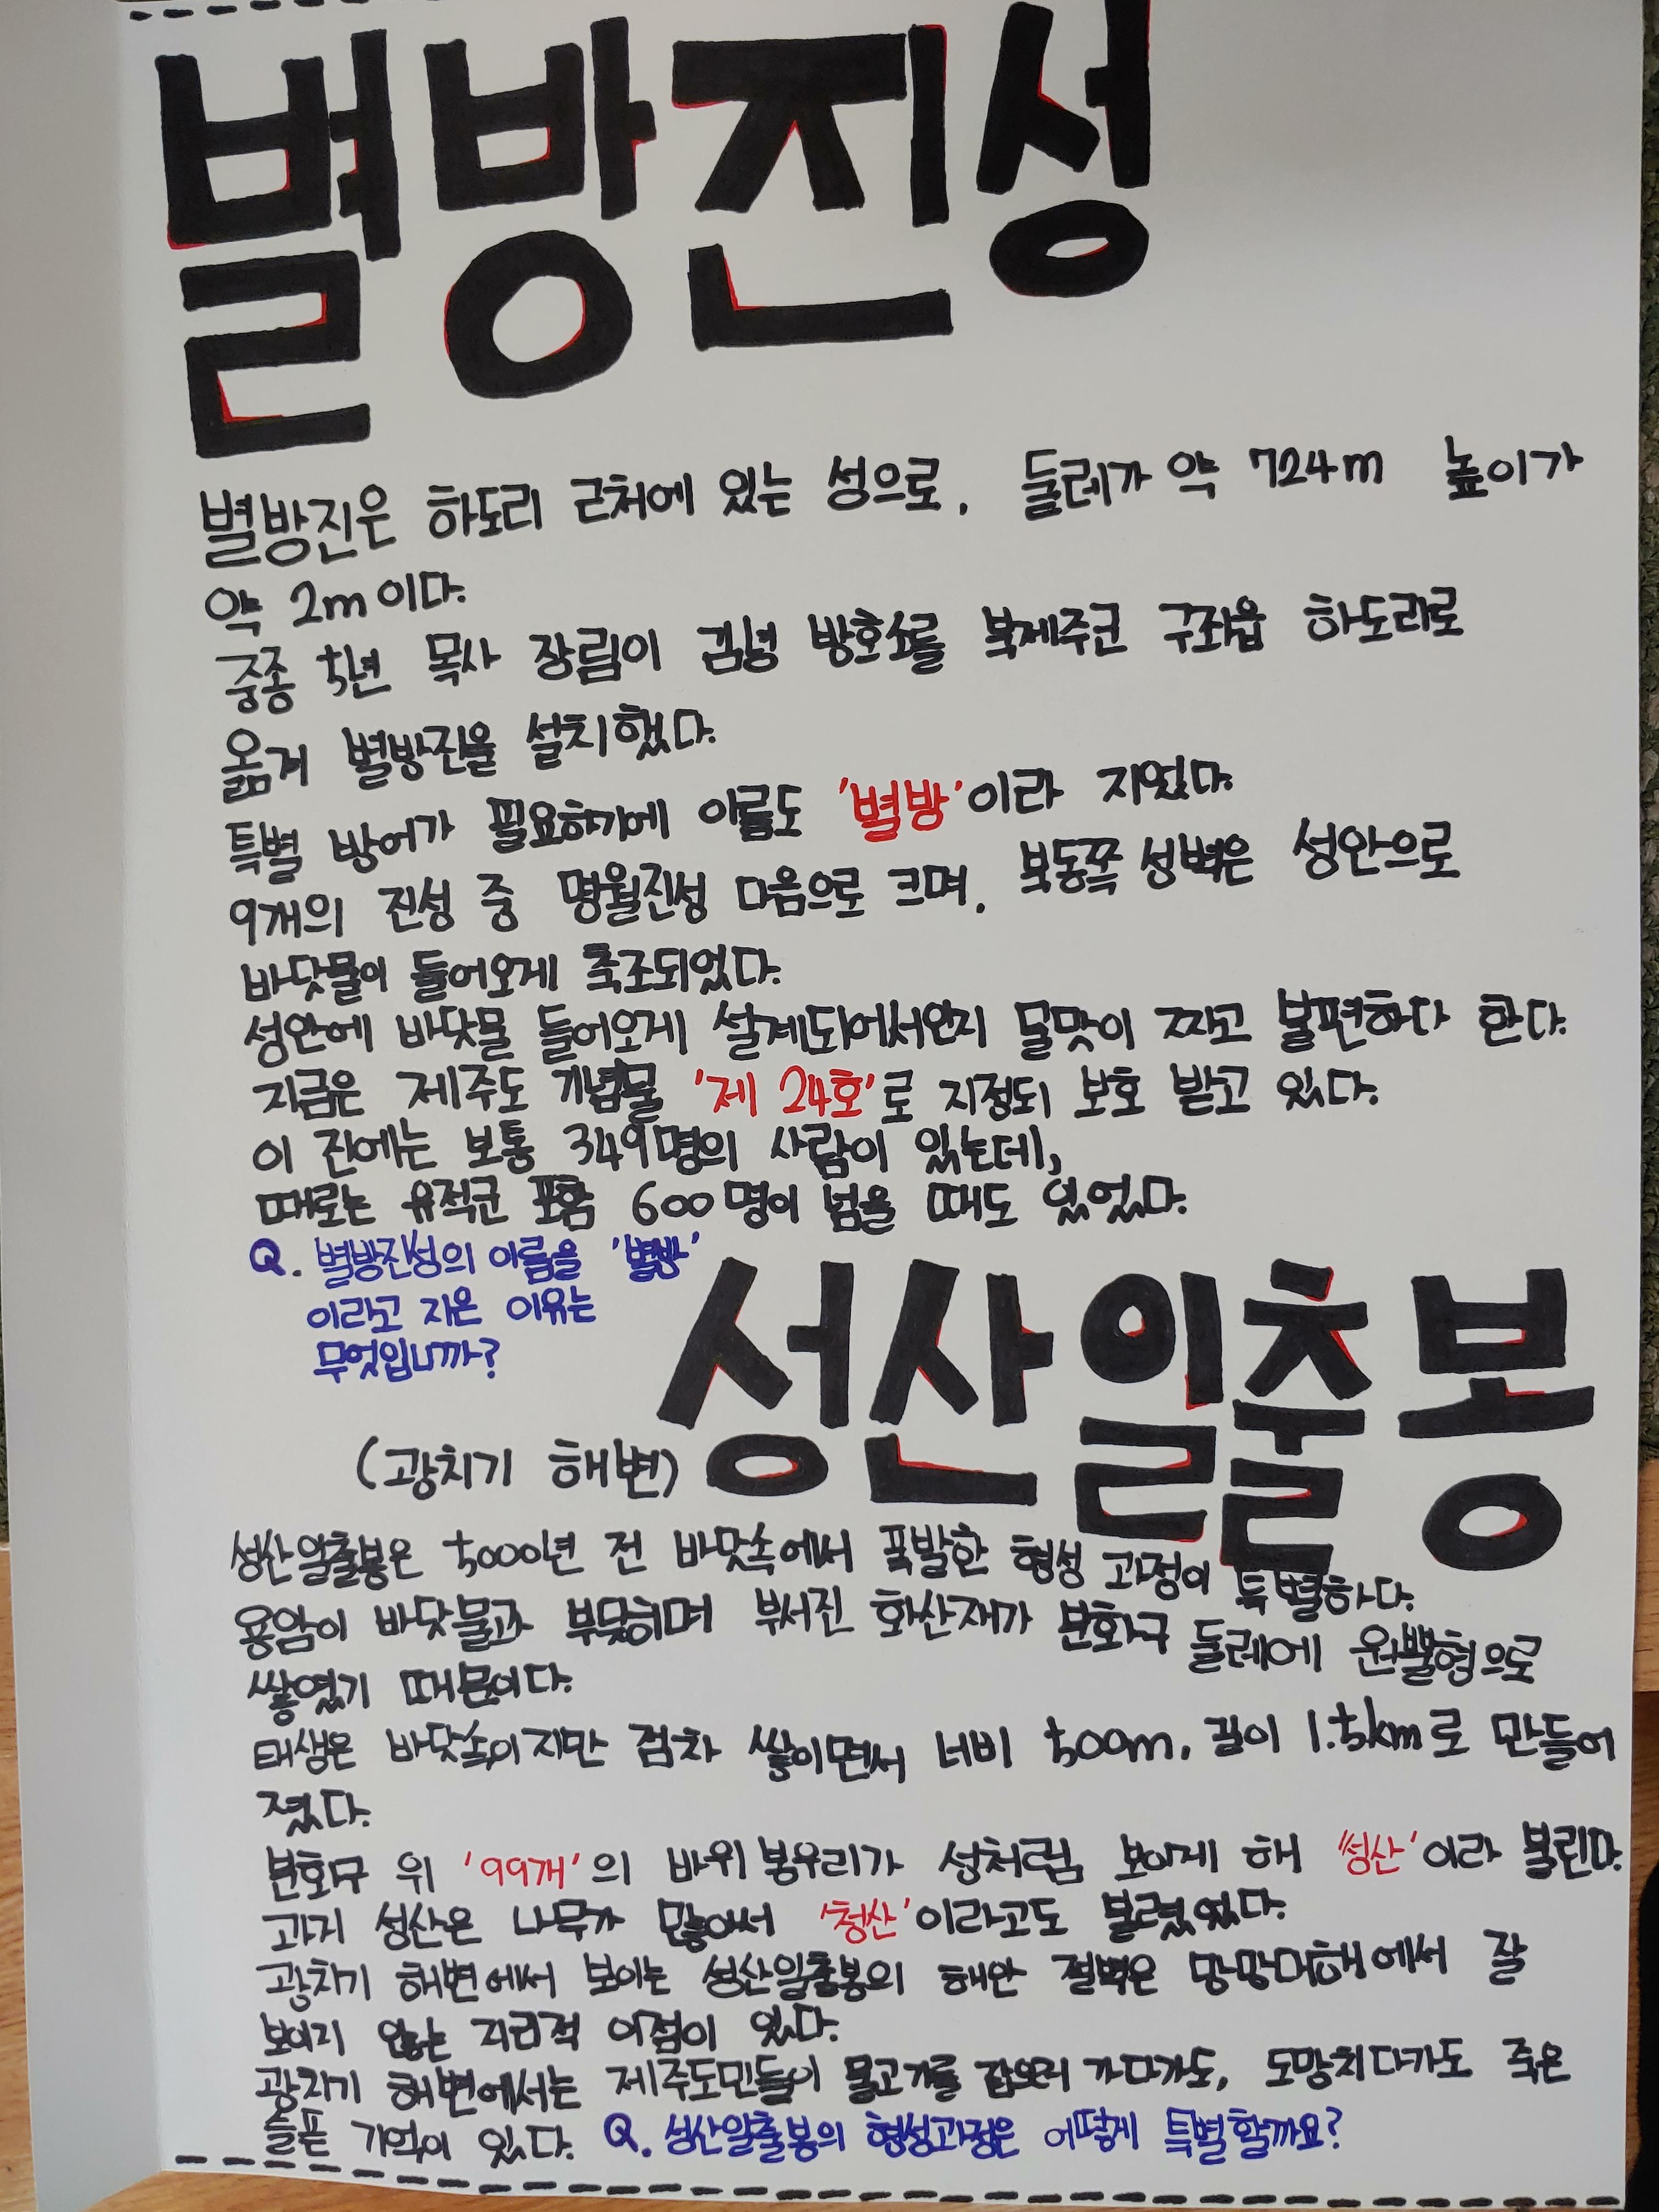 별방진성
별방진은 하도리 근처에 있는 성으로, 둘레가 약 724m 높이가
약 2m이다.
중종 5년 목사 장림이 김녕 방호소를 북제주군 구좌읍 하도리로
옮겨 별방진을 설치했다.
특별 방어가 필요하기에 이름도 '별방'이라 지었다.
9개의 진성 중 명월진성 다음으로 크며, 북동쪽 성벽은 성안으로
바닷물이 들어오게 축조되었다.
성안에 바닷물 들어오게 설계되어서인지 물맛이 짜고 불편하다 한다.
지금은 제주도 기념물 '제 24호'로 지정되 보호 받고 있다.
이 진에는 보통 349명의 사람이 있는데,
때로는 유적군 포함 600명이 넘을 때도 있었다.
Q. 별방진성의 이름을 '별방'
이라고 지은 이유는
무엇입니까?
성산일출봉
(광치기 해변)
성산일출봉은 5000년 전 바닷속에서 폭발한 형성 과정이 특별하다.
용암이 바닷물과 부딪히며 부서진 화산재가 분화구 둘레에 원뿔형으로
쌓였기 때문이다.
태생은 바닷속이지만 점차 쌓이면서 너비 500m, 길이 1.5km로 만들어
졌다.
분화구 위 '99개'의 바위 봉우리가 성처럼 보이게 해 '성산'이라 불린다.
과거 성산은 나무가 많아서 '청산'이라고도 불렸었다.
광치기 해변에서 보이는 성산일출봉의 해안 절벽은 망망대해에서 잘
보이지 않는 지리적 이점이 있다.
광치기 해변에서는 제주도민들이 물고기를 잡으러 가다가도, 도망치다가도 죽은
슬픈 기억이 있다. Q. 성산일출봉의 형성과정은 어떻게 특별할까요?